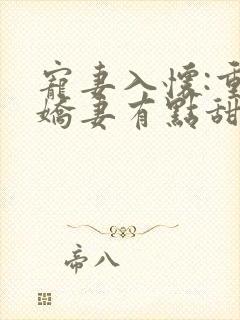 寵妻入懷:重
嬌妻有點甜
帝八